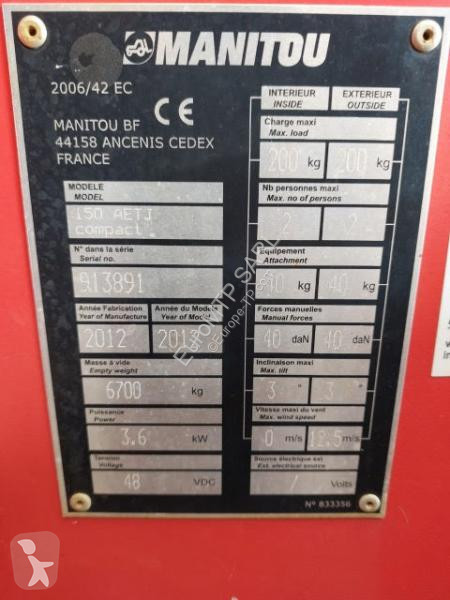 MANITOU
2006/42 EC
CE
MANITOU BF
44158 ANCENIS CEDEX
FRANCE
MODELE
MODEL
150 AETJ
compact
N° dans la série
Serial no.
913891
Année Fabrication
Year of Manufacture
Année du Modèle
Year of Model
2012
Masse à vide
Empty weight
6700 kg
Puissance
Power
3.6 kW
Tension
Voltage
48 VDC
INTERIEUR
INSIDE
EXTERIEUR
OUTSIDE
Charge maxi
Max. load
200 kg 200 kg
Nb personnes maxi
Max. no of persons
2 2
Equipement
Attachment
kg 40 kg
Forces manuelles
Manual forces
40 daN 40 daN
Inclinaison maxi
Max. tilt
3 ° 3 °
Vitesse maxi du vent
Max. wind speed
0 m/s 12.5 m/s
Source électrique ext
Ext. electrical source
/ Volts
N° 833356
EuropeTP SARL
©Europe-TP